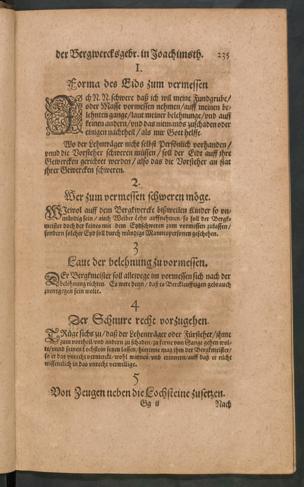 der Bergwercksgebr. in Joachimsth. 235
1.
Forma des Eids zum vermessen
ICh N. N. schwere daß ich wil meine Fundgrube/
oder Masse vormessen nehmen/ auff meinen be-
lehnten gange/ laut meiner belehnunge/ vnd auff
keinen andern/ vnd das niemands zuschaden oder
einigen nachtheil/ als mir Gott helffe.
Wo der Lehnträger nicht selbst Persönlich vorhanden/
vnnd die Vorsteher schweren müssen/ sol der Eid auff ihre
Gewercken gerichtet werden/ also das die Vorsteher an stat
ihrer Gewercken schweren.
2.
Wer zum vermessen schweren möge.
WIewol auff dem Bergkwercke bißweilen Kinder so vn-
mündig sein/ auch Weiber Lehn auffnehmen. so sol der Bergk-
meister doch der keines mit dem Eydschweren zum vermessen zulassen/
sondern solcher Eyd soll durch mündige Mannespersonen geschehen.
3
Laut der belehnung zu vormessen.
DEr Bergkmeister soll allewege im vormessen sich nach der
Belehnung richten. Es were denn/ daß es Bercklaufftigen gebrauch
zuentgegen sein wolte.
4
Der Schnure recht vorzugehen.
TRüge sichs zu/ daß der Lehenträger oder Fürsteher/ ihme
zum vortheil/ vnd andern zu schaden/ zu ferne von Gange gehen wol-
te/ vnnd seinen Lochstein setzen lassen/ hierinne mag ihm der Bergkmeister/
so er das vnrecht vermerckt/ wohl warnen/ vnd erinnern/ auff daß er nicht
wissentlich in das vnrecht verwillige.
5
Von Zeugen neben die Lochsteine zusetzen.
Gg ii Nach